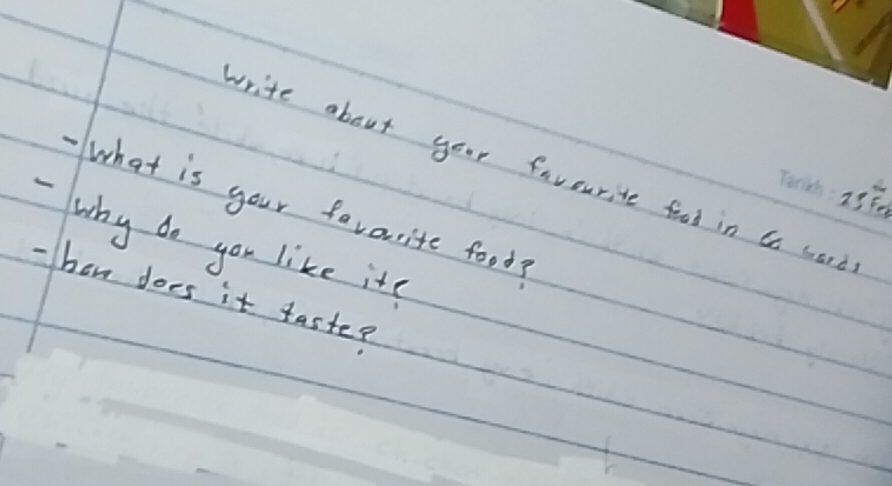 Tarikh: 25 Feb
Write about your favourite food in 60 words
- What is your favourite food?
- Why do you like it?
- how does it taste?